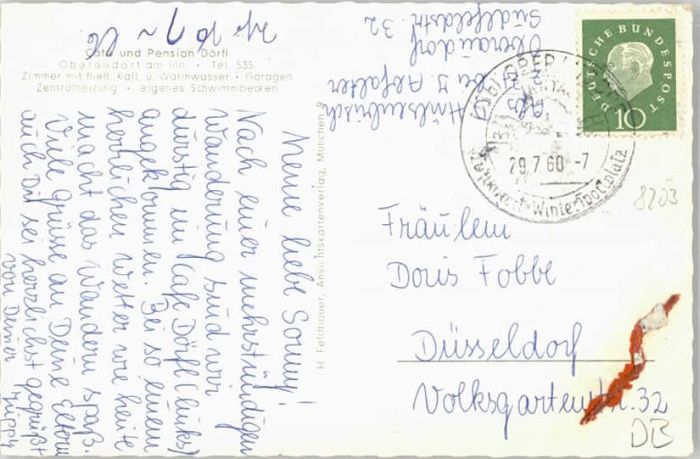 Café und Pension Dörfl
Oberaudorf am Inn · Tel. 535
Zimmer mit fließ. Kalt. u. Warmwasser · Garagen
Zentralheizung · eigenes Schwimmbecken
Meine liebe Sonny!
Nach einer mehrstündigen
Wanderung sind wir
durstig im Café Dörfl (links)
angekommen. Bei so einem
herrlichen Wetter wie heute
macht das Wandern Spaß.
Viele Grüße an Deine Eltern
auch Du sei herzlichst gegrüßt
von Deiner
H. Feldtrauer, Ansichtskartenverlag, München 9
Abs.
z. Zt.
bei J. Abfalter
Oberaudorf
Südfeldstr. 32
DEUTSCHE BUNDESPOST
10
29.7.60 -7
Wintersportplatz
8203
Fräulein
Doris Fobbe
Düsseldorf
Volksgartenstr. 32
DB